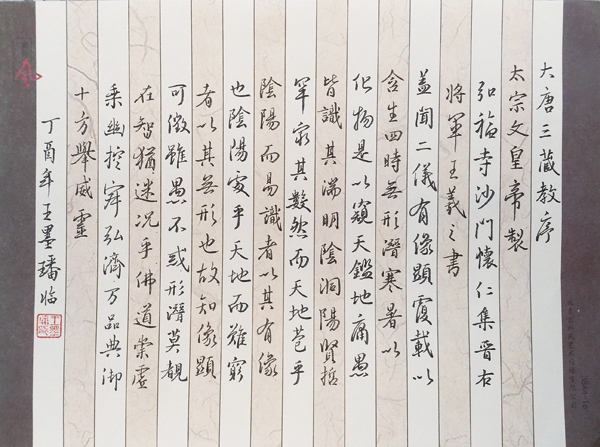 大唐三藏教序
太宗文皇帝製
弘福寺沙門懷仁集晉右
將軍王羲之書
蓋聞二儀有像顯覆載以
含生四時無形潛寒暑以
化物是以窺天鑑地庸愚
皆識其端明陰洞陽賢哲
罕窮其數然而天地苞乎
陰陽而易識者以其有像
也陰陽處乎天地而難窮
者以其無形也故知像顯
可徵雖愚不惑形潛莫覩
在智猶迷況乎佛道崇虛
乘幽控寂弘濟万品典御
十方舉威靈
丁酉年王墨璠臨